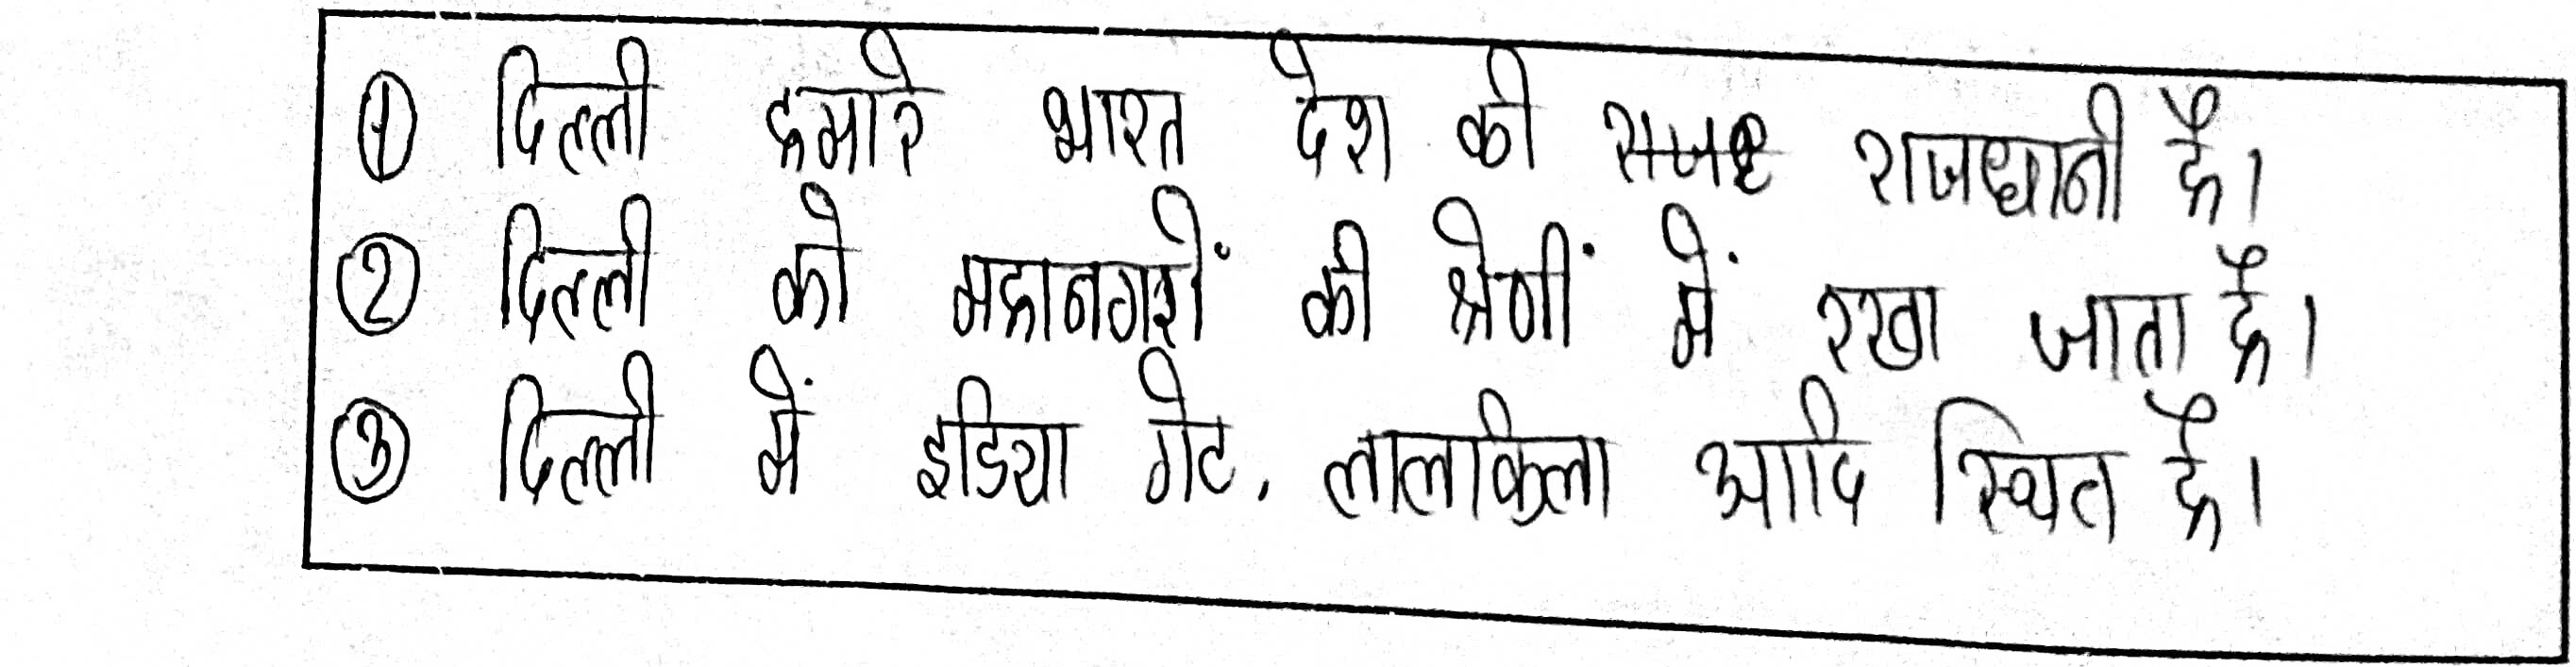 ① दिल्ली हमारे भारत देश की राजधानी है।
② दिल्ली को महानगरों की श्रेणीं में रखा जाता है।
③ दिल्ली में इडिया गेट, लालकिला आदि स्थित है।